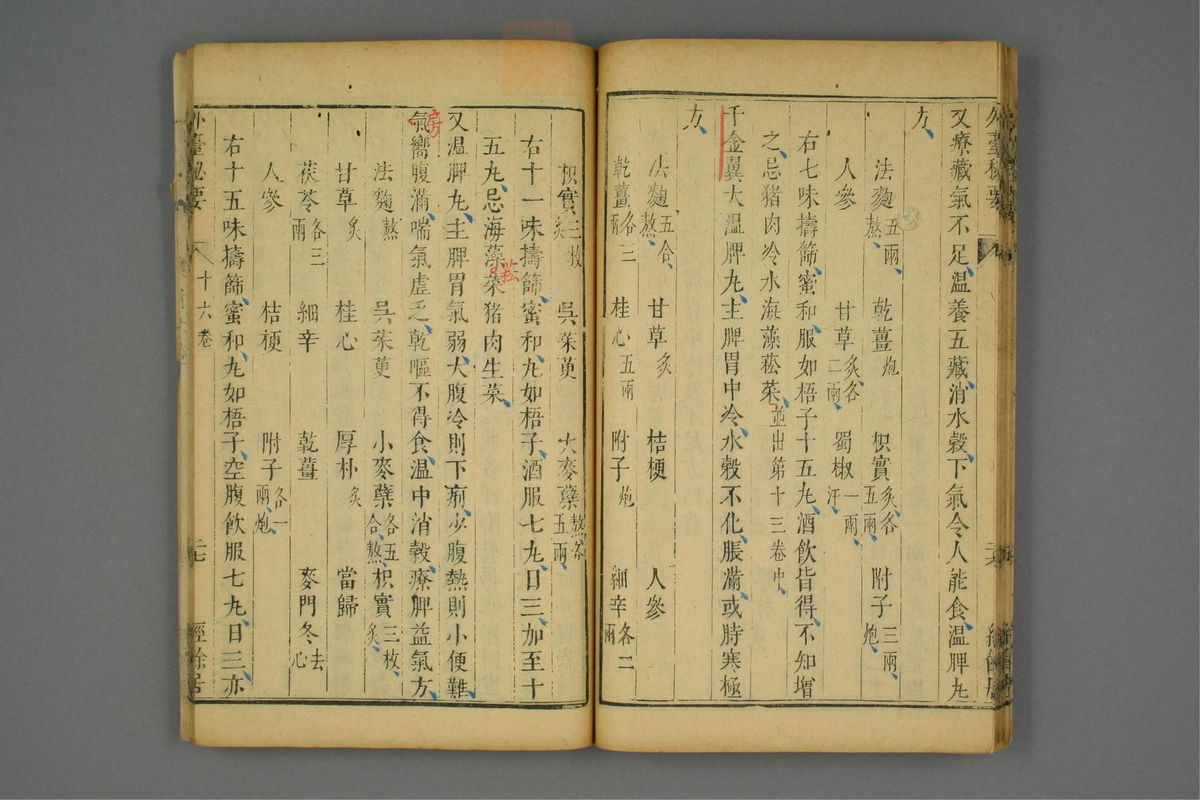 外臺秘要
又療藏氣不足溫養五藏消水穀下氣令人能食溫脾丸
方
法麴五兩熬 乾薑炮 枳實炙各五兩 附子三兩炮
人參 甘草炙各二兩 蜀椒一兩汗
右七味擣篩蜜和服如梧子十五丸酒飲皆得不知增
之忌猪肉冷水海藻菘菜並出第十三卷中
千金翼大溫脾丸主脾胃中冷水穀不化脹滿或時寒極
方
法麴五合熬 甘草炙 桔梗 人參
乾薑各三兩 桂心五兩 附子炮 細辛各二兩
枳實三枚炙 吳茱萸 大麥蘖熬各五兩
右十一味擣篩蜜和丸如梧子酒服七丸日三加至十
五丸忌海藻菜猪肉生菜
菘
又溫脾丸主脾胃氣弱大腹冷則下痢少腹熱則小便難
房
氣嚮腹滿喘氣虛乏乾嘔不得食溫中消穀療脾益氣方
法麴熬 吳茱萸 小麥蘖各五合熬 枳實三枚炙
甘草炙 桂心 厚朴炙 當歸
茯苓各三兩 細辛 乾薑 麥門冬去心
人參 桔梗 附子各一兩炮
右十五味擣篩蜜和丸如梧子空腹飲服七丸日三亦
外臺秘要 十六卷 二七 經餘居